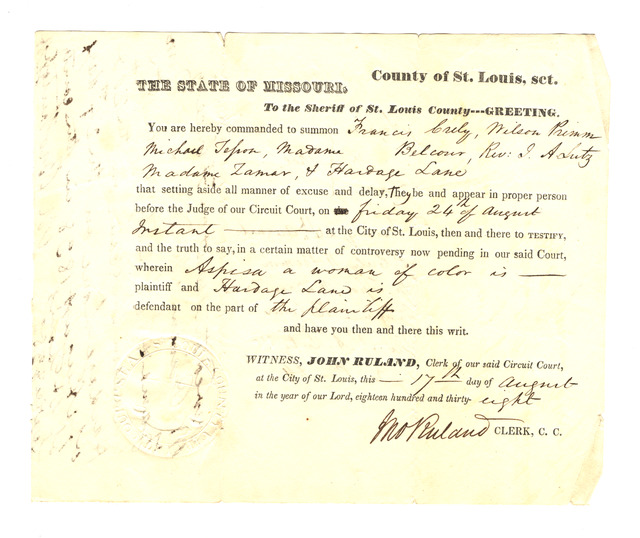 THE STATE OF MISSOURI, County of St. Louis, sct.
To the Sheriff of St. Louis County---GREETING.
You are hereby commanded to summon Francis Crely, Wilson Primm
Michael Tesson, Madame Belcour, Rev: J. A Lutz
Madame Lamar, & Hardage Lane
that setting aside all manner of excuse and delay, They be and appear in proper person
before the Judge of our Circuit Court, on the friday 24th of August
Instant at the City of St. Louis, then and there to TESTIFY,
and the truth to say, in a certain matter of controversy now pending in our said Court,
wherein Aspisa a woman of color is —
plaintiff and Hardage Lane is
defendant on the part of the plaintiff
and have you then and there this writ.
WITNESS, JOHN RULAND, Clerk of our said Circuit Court,
at the City of St. Louis, this — 17th day of August
in the year of our Lord, eighteen hundred and thirty-eight
Jno Ruland CLERK, C. C.